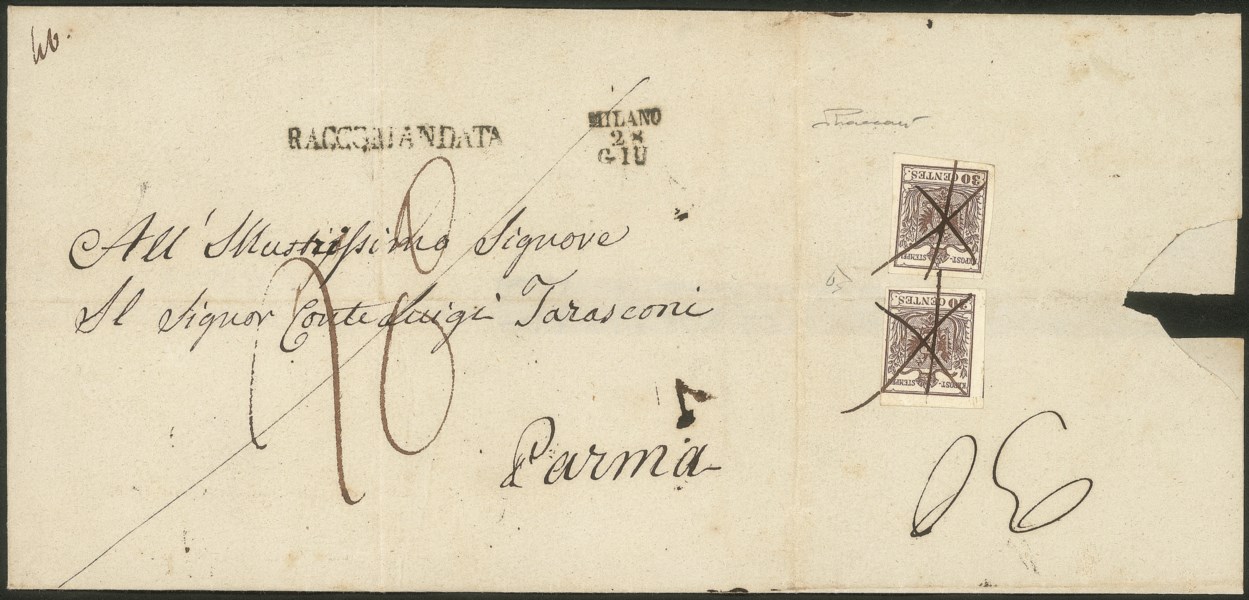 RACCOMANDATA
MILANO
28
GIU
All' Illustrissimo Signore
Il Signor Conte Luigi Tarasconi
Parma
30 CENTES.
K·K·POST-STEMPEL
30 CENTES.
K·K·POST-STEMPEL